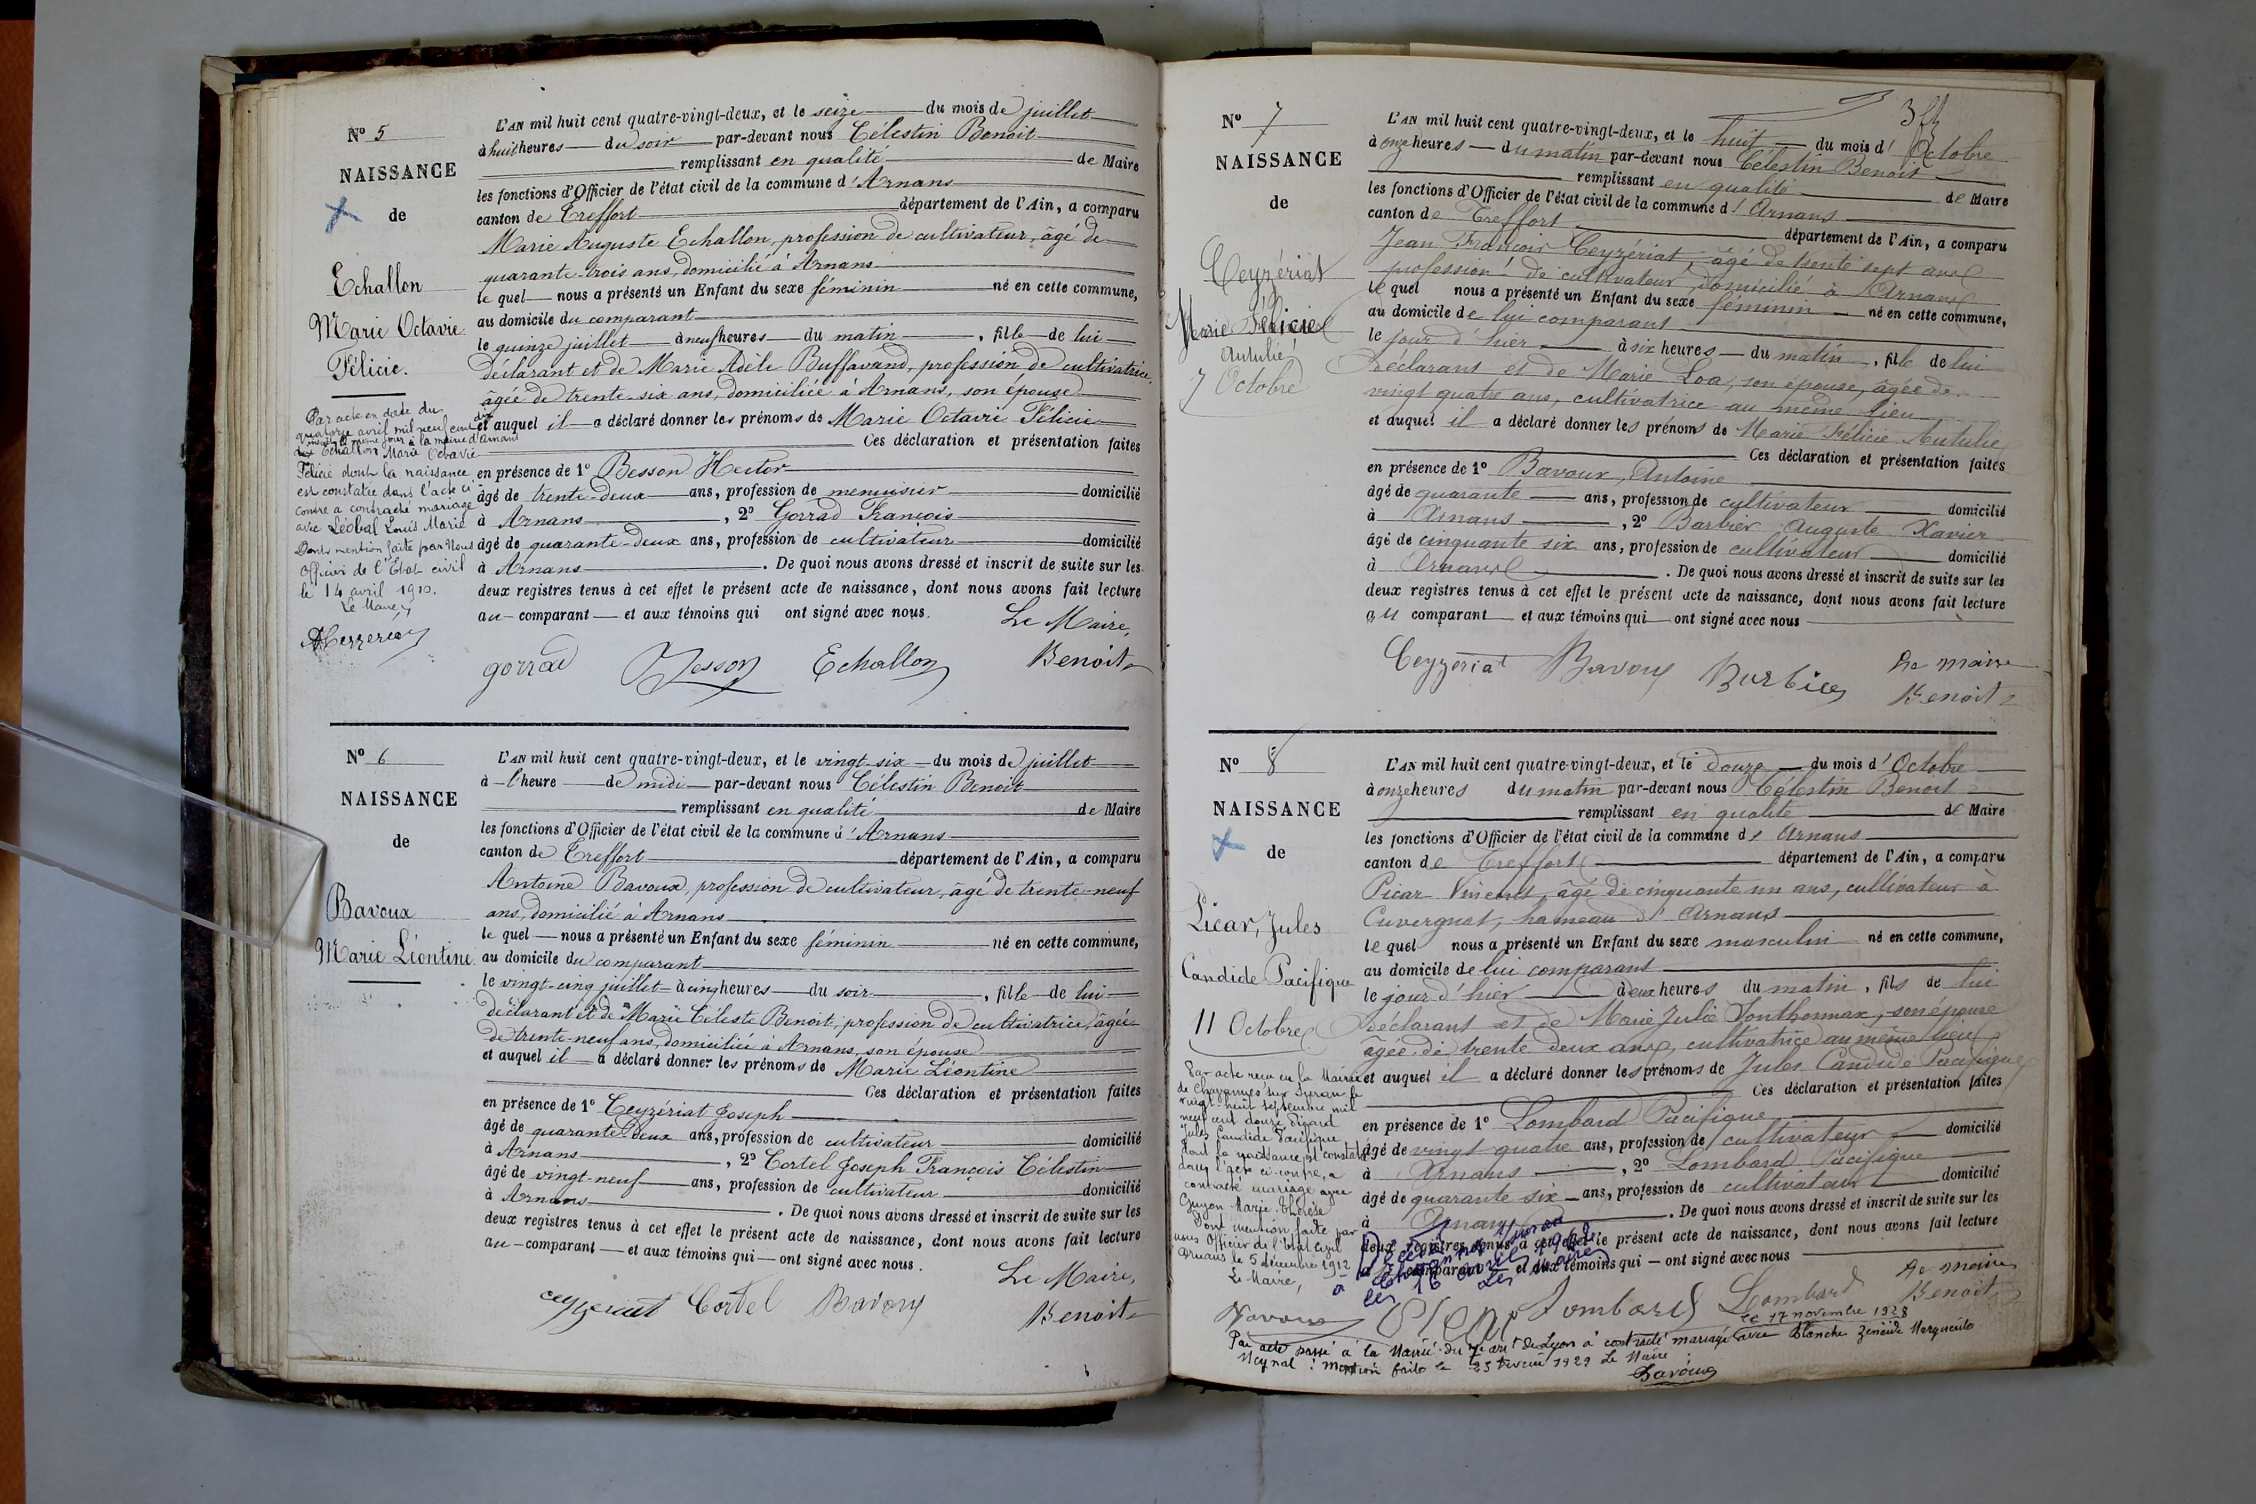 N° 5
NAISSANCE
de
Echallon
Marie Octavie
Félicie.
Par acte en date du
quatorze avril mil neuf cent
dix Echallon Marie Octavie
Félicie dont la naissance
est constatée dans l'acte ci
contre a contracté mariage
avec Léobal Louis Marie
Dont mention faite par Nous
Officier de l'Etat civil
le 14 avril 1910.
Le Maire
L'AN mil huit cent quatre-vingt-deux, et le seize du mois de juillet
à huit heures du soir par-devant nous Célestin Benoit
remplissant en qualité de Maire
les fonctions d'Officier de l'état civil de la commune d'Arnans
canton de Treffort département de l'Ain, a comparu
Marie Auguste Echallon, profession de cultivateur, âgé de
quarante-trois ans, domicilié à Arnans
le quel nous a présenté un Enfant du sexe féminin né en cette commune,
au domicile du comparant
le quinze juillet à neuf heures du matin, fille de lui
déclarant et de Marie Adèle Buffavand, profession de cultivatrice,
âgée de trente-six ans, domiciliée à Arnans, son épouse
et auquel il a déclaré donner les prénoms de Marie Octavie Félicie
Ces déclaration et présentation faites
en présence de 1° Besson Hector
âgé de trente-deux ans, profession de menuisier domicilié
à Arnans, 2° Gorrad François
âgé de quarante-deux ans, profession de cultivateur domicilié
à Arnans. De quoi nous avons dressé et inscrit de suite sur les
deux registres tenus à cet effet le présent acte de naissance, dont nous avons fait lecture
au comparant et aux témoins qui ont signé avec nous.
Le Maire,
gorrad Besson Echallon Benoit
N° 6
NAISSANCE
de
Bavoux
Marie Léontine
L'AN mil huit cent quatre-vingt-deux, et le vingt-six du mois de juillet
à l'heure de midi par-devant nous Célestin Benoit
remplissant en qualité de Maire
les fonctions d'Officier de l'état civil de la commune d'Arnans
canton de Treffort département de l'Ain, a comparu
Antoine Bavoux, profession de cultivateur, âgé de trente-neuf
ans, domicilié à Arnans
le quel nous a présenté un Enfant du sexe féminin né en cette commune,
au domicile du comparant
le vingt-cinq juillet à cinq heures du soir, fille de lui
déclarant et de Marie Céleste Benoit, profession de cultivatrice, âgée
de trente-neuf ans, domiciliée à Arnans, son épouse
et auquel il a déclaré donner les prénoms de Marie Léontine
Ces déclaration et présentation faites
en présence de 1° Ceyzériat Joseph
âgé de quarante-deux ans, profession de cultivateur domicilié
à Arnans, 2° Cortel Joseph François Célestin
âgé de vingt-neuf ans, profession de cultivateur domicilié
à Arnans. De quoi nous avons dressé et inscrit de suite sur les
deux registres tenus à cet effet le présent acte de naissance, dont nous avons fait lecture
au comparant et aux témoins qui ont signé avec nous.
Le Maire,
ceyzeriat Cortel Bavoux Benoit
N° 7
NAISSANCE
de
Ceyzériat
Marie Félicie
Autulie
7 Octobre
L'AN mil huit cent quatre-vingt-deux, et le huit du mois d'Octobre
à onze heures du matin par-devant nous Célestin Benoit
remplissant en qualité de Maire
les fonctions d'Officier de l'état civil de la commune d'Arnans
canton de Treffort département de l'Ain, a comparu
Jean François Ceyzériat, âgé de trente sept ans
profession de cultivateur, domicilié à Arnans
le quel nous a présenté un Enfant du sexe féminin né en cette commune,
au domicile de lui comparant
le jour d'hier à six heures du matin, fille de lui
déclarant et de Marie Loa, son épouse, âgée de
vingt quatre ans, cultivatrice au même lieu
et auquel il a déclaré donner les prénoms de Marie Félicie Autulie
Ces déclaration et présentation faites
en présence de 1° Bavoux, Antoine
âgé de quarante ans, profession de cultivateur domicilié
à Arnans, 2° Barbier Auguste Xavier
âgé de cinquante six ans, profession de cultivateur domicilié
à Arnans. De quoi nous avons dressé et inscrit de suite sur les
deux registres tenus à cet effet le présent acte de naissance, dont nous avons fait lecture
au comparant et aux témoins qui ont signé avec nous
Le maire
Ceyzeriat Bavoux Barbier Benoit
N° 8
NAISSANCE
de
Picar, Jules
Candide Pacifique
11 Octobre
Par acte reçu en la Mairie
de Chavannes sur Suran le
vingt huit septembre mil
neuf cent douze Picard
Jules Candide Pacifique
dont la naissance est constatée
dans l'acte ci-contre, a
contracté mariage avec
Guyon Marie Thérèse
Dont mention faite par
nous Officier de l'Etat Civil
Arnans le 5 décembre 1912
Le Maire,
Bavoux
L'AN mil huit cent quatre-vingt-deux, et le douze du mois d'Octobre
à onze heures du matin par-devant nous Célestin Benoit
remplissant en qualité de Maire
les fonctions d'Officier de l'état civil de la commune d'Arnans
canton de Treffort département de l'Ain, a comparu
Picar Vincent, âgé de cinquante un ans, cultivateur à
Cuvergnat, hameau d'Arnans
le quel nous a présenté un Enfant du sexe masculin né en cette commune,
au domicile de lui comparant
le jour d'hier à deux heures du matin, fils de lui
déclarant et de Marie Julie Southonnax, son épouse
âgée de trente deux ans, cultivatrice au même lieu
et auquel il a déclaré donner les prénoms de Jules Candide Pacifique
Ces déclaration et présentation faites
en présence de 1° Lombard Pacifique
âgé de vingt quatre ans, profession de cultivateur domicilié
à Arnans, 2° Lombard Pacifique
âgé de quarante six ans, profession de cultivateur domicilié
à Arnans. De quoi nous avons dressé et inscrit de suite sur les
deux registres tenus à cet effet le présent acte de naissance, dont nous avons fait lecture
au comparant et aux témoins qui ont signé avec nous
Décédé
à Chavannes s/Suran
le 16 avril
Le Maire
Le maire
Picar Lombard Lombard Benoit
le 17 novembre 1928
Par acte passé à la Mairie du 7e art de Lyon a contracté mariage avec Blanche Zénaïde Marguerite
Meynal. Mention faite le 25 février 1929 Le Maire
Bavoux